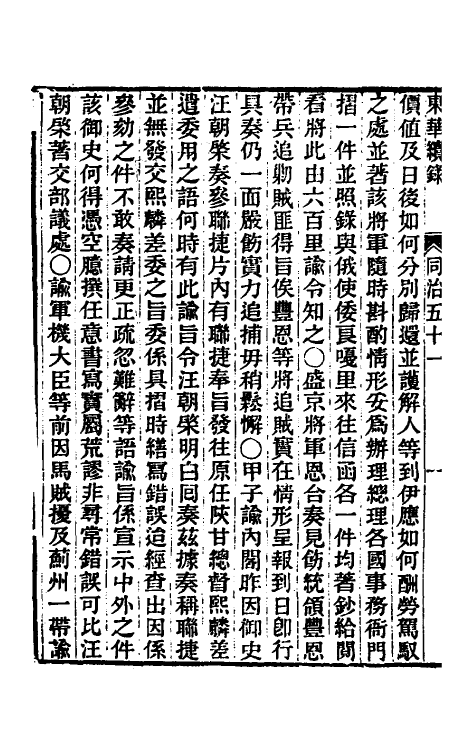 東華續錄　同治五十一　一
價值及日後如何分別歸還並護解人等到伊應如何酬勞駕馭
之處並著該將軍隨時斟酌情形妥爲辦理總理各國事務衙門
摺一件並照錄與俄使倭良嘎里來往信函各一件均著鈔給閱
看將此由六百里諭令知之○盛京將軍恩合奏見飭統領豐恩
帶兵追勦賊匪得旨俟豐恩等將追賊實在情形呈報到日卽行
具奏仍一面嚴飭實力追捕毋稍鬆懈○甲子諭內閣昨因御史
汪朝棨奏參聯捷片內有聯捷奉旨發往原任陝甘總督熙麟差
遣委用之語何時有此諭旨令汪朝棨明白回奏茲據奏稱聯捷
並無發交熙麟差委之旨委係具摺時繕寫錯誤追經查出因係
參劾之件不敢奏請更正疏忽難辭等語諭旨係宣示中外之件
該御史何得憑空臆撰任意書寫實屬荒謬非尋常錯誤可比汪
朝棨著交部議處○諭軍機大臣等前因馬賊擾及薊州一帶諭